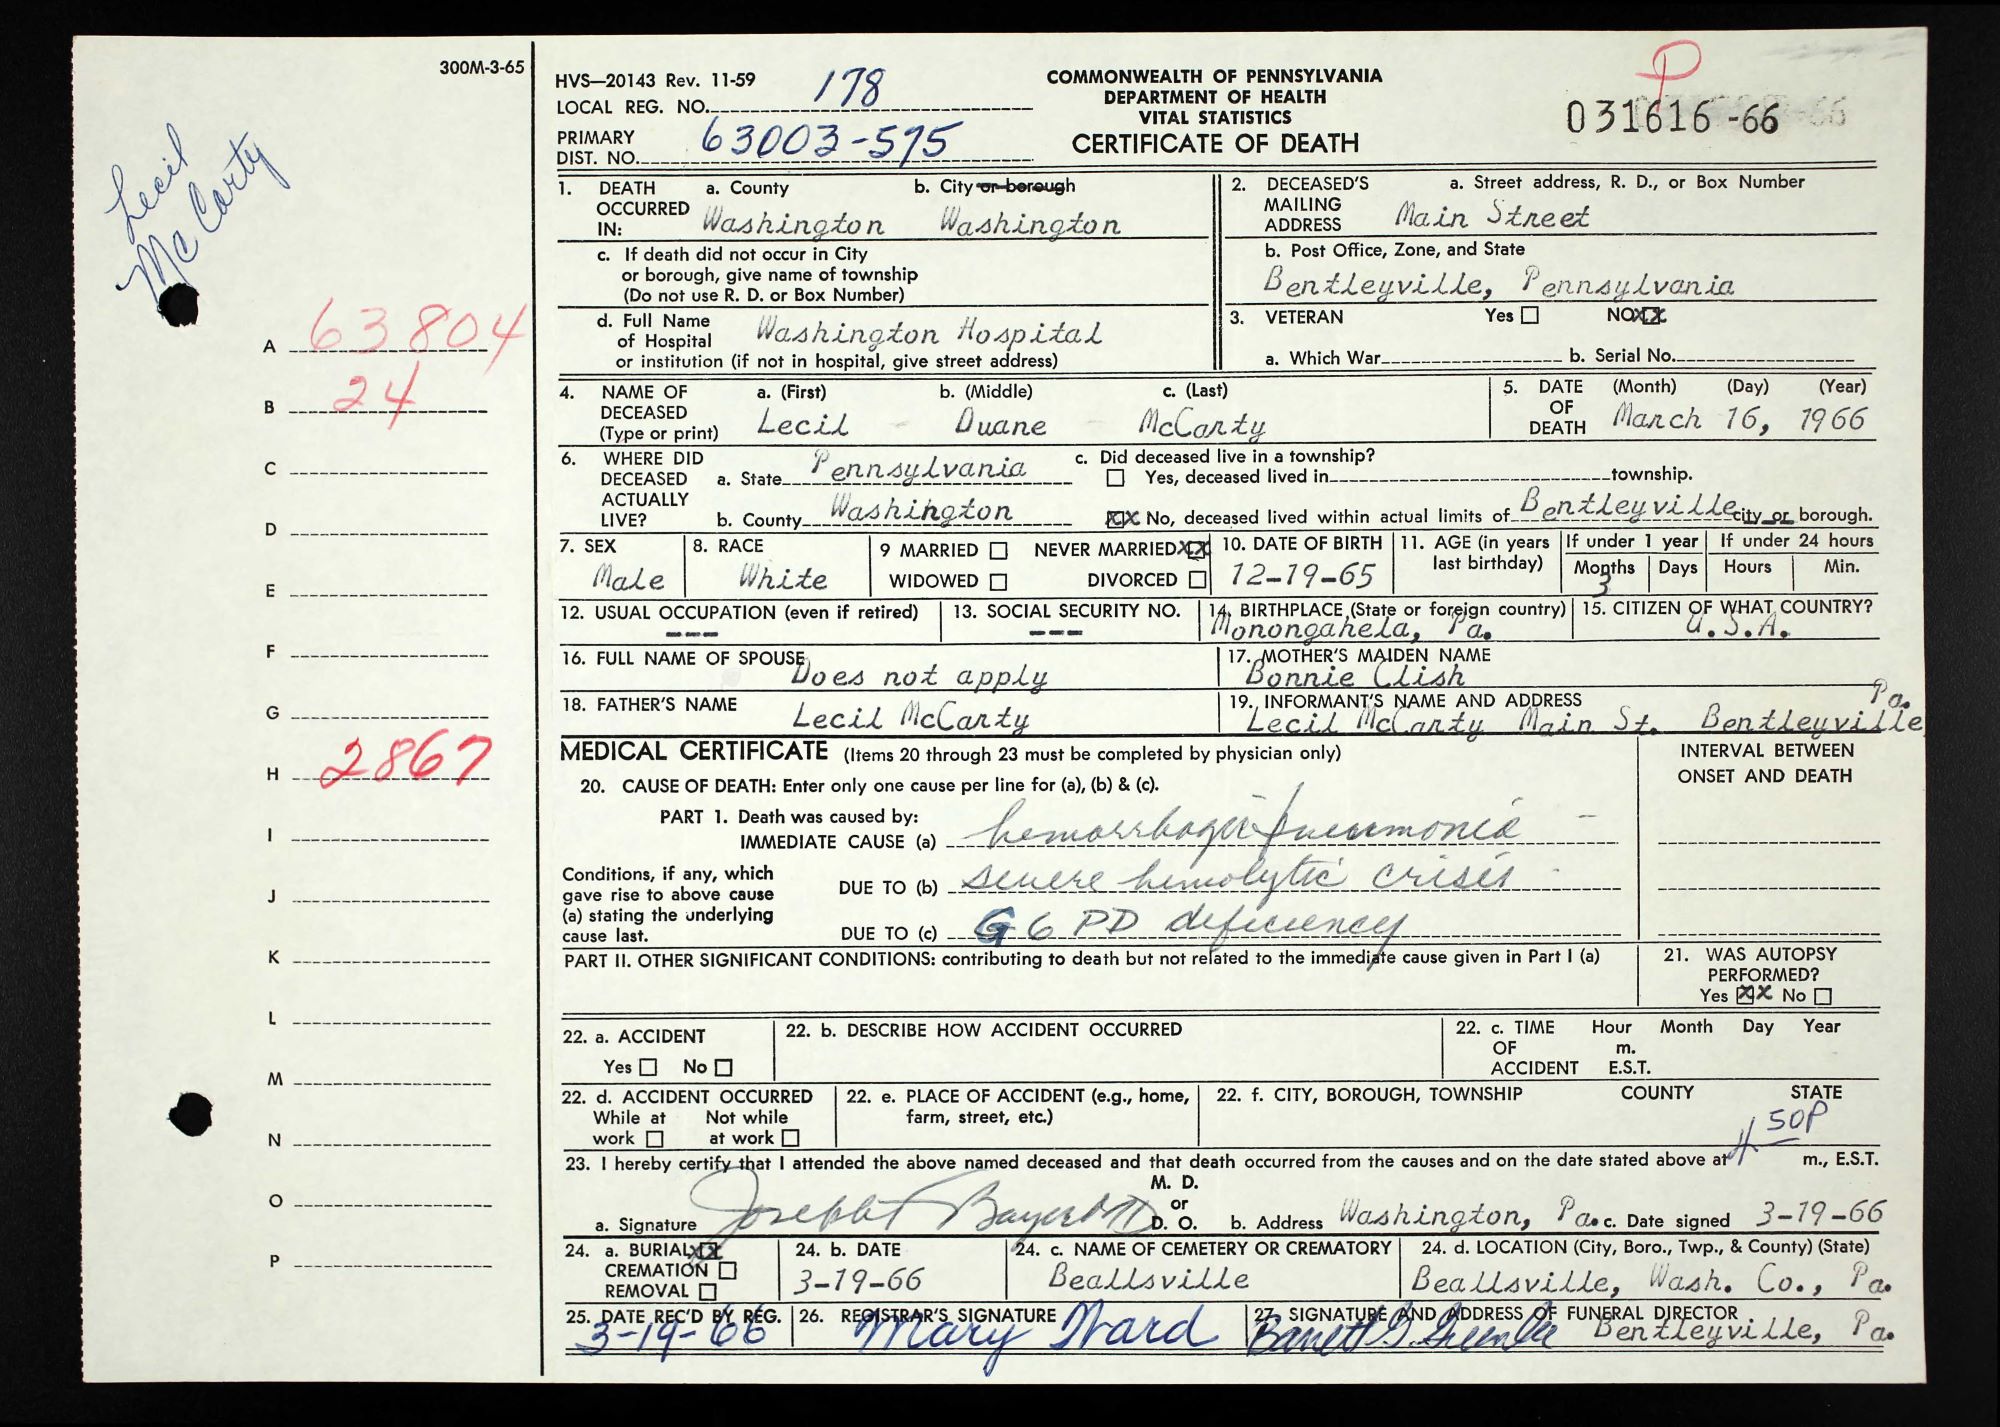 300M-3-65
Lecil
McCarty
A 63804
B 24
C
D
E
F
G
H 2867
I
J
K
L
M
N
O
P
HVS—20143 Rev. 11-59
LOCAL REG. NO. 178
PRIMARY
DIST. NO. 63003-575
COMMONWEALTH OF PENNSYLVANIA
DEPARTMENT OF HEALTH
VITAL STATISTICS
CERTIFICATE OF DEATH
P
031616-66
1. DEATH OCCURRED IN:
a. County Washington
b. City or borough Washington
c. If death did not occur in City
or borough, give name of township
(Do not use R. D. or Box Number)
d. Full Name of Hospital Washington Hospital
or institution (if not in hospital, give street address)
2. DECEASED'S MAILING ADDRESS
a. Street address, R. D., or Box Number
Main Street
b. Post Office, Zone, and State
Bentleyville, Pennsylvania
3. VETERAN Yes NO XX
a. Which War b. Serial No.
4. NAME OF DECEASED (Type or print)
a. (First) b. (Middle) c. (Last)
Lecil Duane McCarty
5. DATE OF DEATH (Month) (Day) (Year)
March 16, 1966
6. WHERE DID DECEASED ACTUALLY LIVE?
a. State Pennsylvania
b. County Washington
c. Did deceased live in a township?
Yes, deceased lived in township.
XX No, deceased lived within actual limits of Bentleyville city or borough.
7. SEX
Male
8. RACE
White
9 MARRIED NEVER MARRIED XX
WIDOWED DIVORCED
10. DATE OF BIRTH
12-19-65
11. AGE (in years last birthday)
If under 1 year If under 24 hours
Months Days Hours Min.
3
12. USUAL OCCUPATION (even if retired)
---
13. SOCIAL SECURITY NO.
---
14. BIRTHPLACE (State or foreign country)
Monongahela, Pa.
15. CITIZEN OF WHAT COUNTRY?
U.S.A.
16. FULL NAME OF SPOUSE
Does not apply
17. MOTHER'S MAIDEN NAME
Bonnie Clish
18. FATHER'S NAME
Lecil McCarty
19. INFORMANT'S NAME AND ADDRESS
Lecil McCarty Main St. Bentleyville Pa.
MEDICAL CERTIFICATE (Items 20 through 23 must be completed by physician only)
INTERVAL BETWEEN
ONSET AND DEATH
20. CAUSE OF DEATH: Enter only one cause per line for (a), (b) & (c).
PART 1. Death was caused by:
IMMEDIATE CAUSE (a) hemorrhagic pneumonia
Conditions, if any, which
gave rise to above cause
(a) stating the underlying
cause last.
DUE TO (b) severe hemolytic crisis
DUE TO (c) G6PD deficiency
PART II. OTHER SIGNIFICANT CONDITIONS: contributing to death but not related to the immediate cause given in Part I (a)
21. WAS AUTOPSY
PERFORMED?
Yes XX No
22. a. ACCIDENT
Yes No
22. b. DESCRIBE HOW ACCIDENT OCCURRED
22. c. TIME OF ACCIDENT Hour Month Day Year
m.
E.S.T.
22. d. ACCIDENT OCCURRED
While at work Not while at work
22. e. PLACE OF ACCIDENT (e.g., home,
farm, street, etc.)
22. f. CITY, BOROUGH, TOWNSHIP COUNTY STATE
23. I hereby certify that I attended the above named deceased and that death occurred from the causes and on the date stated above at 4 50P m., E.S.T.
a. Signature Joseph M. D. or D. O.
b. Address Washington, Pa.
c. Date signed 3-19-66
24. a. BURIAL XX
CREMATION
REMOVAL
24. b. DATE
3-19-66
24. c. NAME OF CEMETERY OR CREMATORY
Beallsville
24. d. LOCATION (City, Boro., Twp., & County) (State)
Beallsville, Wash. Co., Pa.
25. DATE REC'D BY REG.
3-19-66
26. REGISTRAR'S SIGNATURE
Mary Ward
27. SIGNATURE AND ADDRESS OF FUNERAL DIRECTOR
Bentleyville, Pa.